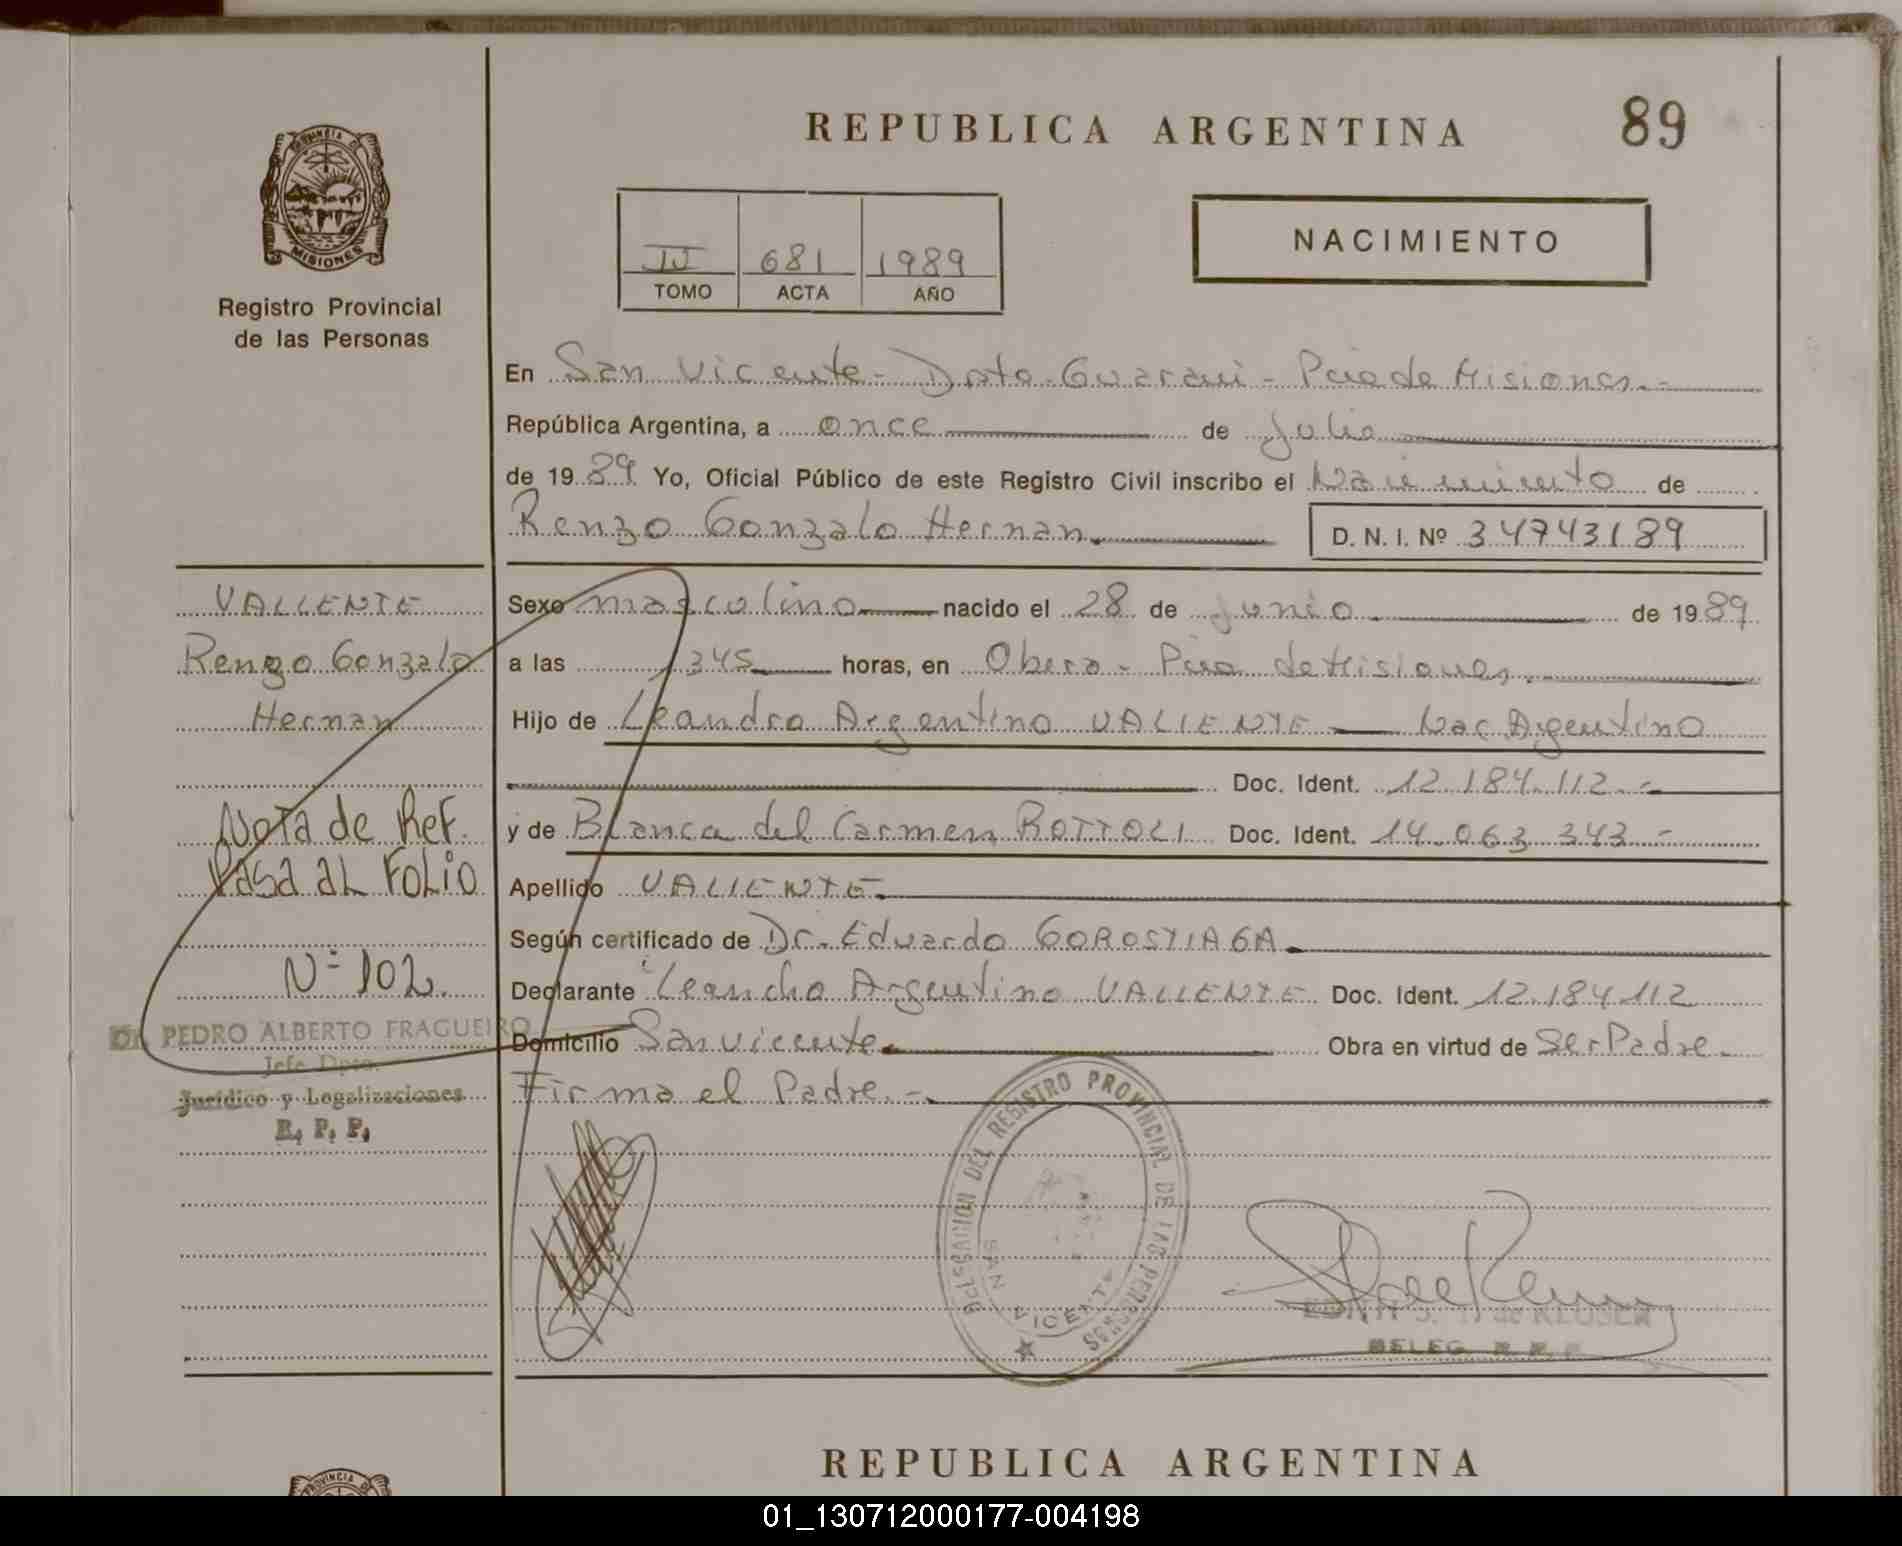 REPUBLICA ARGENTINA
89
PROVINCIA DE
MISIONES
Registro Provincial
de las Personas
II 681 1989
TOMO ACTA AÑO
NACIMIENTO
En San Vicente - Dpto. Guarani - Pcia de Misiones.-
República Argentina, a once de Julio
de 1989 Yo, Oficial Público de este Registro Civil inscribo el Nacimiento de
Renzo Gonzalo Hernan.
D. N. I. Nº 34743189
VALIENTE
Renzo Gonzalo
Hernan
Nota de Ref.
Pasa al Folio
Nº 102.
Dr. PEDRO ALBERTO FRAGUEIRO
Jefe Dpto.
Jurídico y Legalizaciones
R. P. P.
Sexo masculino nacido el 28 de junio de 1989
a las 1345 horas, en Obera - Pcia de Misiones.
Hijo de Leandro Argentino VALIENTE Nac Argentino
Doc. Ident. 12.184.112.-
y de Blanca del Carmen ROTTOLI Doc. Ident. 14.063.343.-
Apellido VALIENTE.
Según certificado de Dr. Eduardo GOROSTIAGA.
Declarante Leandro Argentino VALIENTE Doc. Ident. 12.184.112
Domicilio San Vicente. Obra en virtud de Ser Padre.
Firma el Padre.-
DELEGACION DEL REGISTRO PROVINCIAL DE LAS PERSONAS
SAN VICENTE
de KLUSER
DELEG. R. P. P.
REPUBLICA ARGENTINA
PROVINCIA
01_130712000177-004198